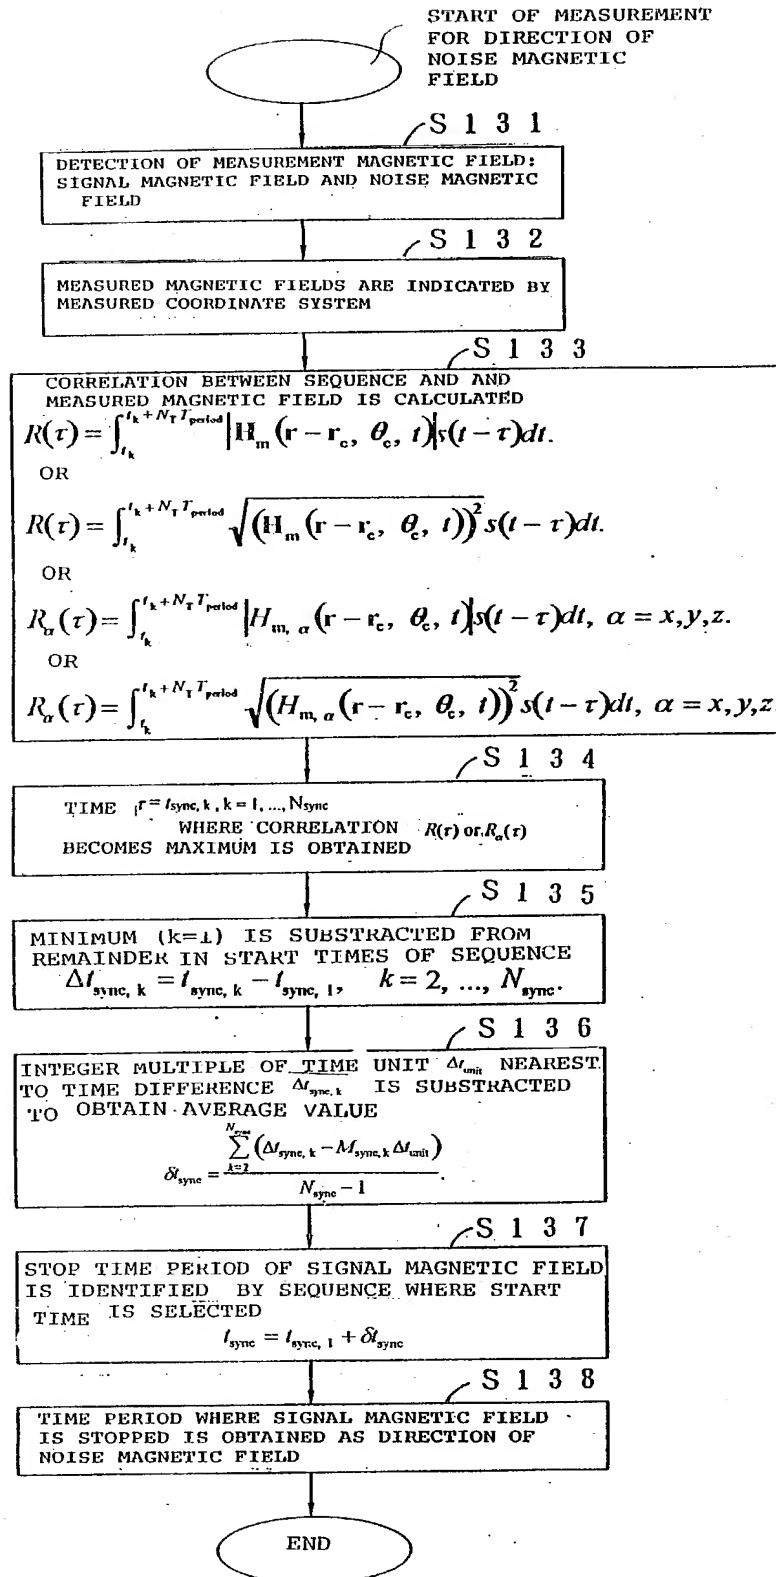 START OF MEASUREMENT
FOR DIRECTION OF
NOISE MAGNETIC
FIELD
S 1 3 1
DETECTION OF MEASUREMENT MAGNETIC FIELD:
SIGNAL MAGNETIC FIELD AND NOISE MAGNETIC
FIELD
S 1 3 2
MEASURED MAGNETIC FIELDS ARE INDICATED BY
MEASURED COORDINATE SYSTEM
S 1 3 3
CORRELATION BETWEEN SEQUENCE AND AND
MEASURED MAGNETIC FIELD IS CALCULATED
R(τ) = ∫_{t_k}^{t_k + N_T T_period} |H_m (r − r_c, θ_c, t)| s(t − τ)dt.
OR
R(τ) = ∫_{t_k}^{t_k + N_T T_period} √((H_m (r − r_c, θ_c, t))²) s(t − τ)dt.
OR
R_α(τ) = ∫_{t_k}^{t_k + N_T T_period} |H_{m, α} (r − r_c, θ_c, t)| s(t − τ)dt, α = x, y, z.
OR
R_α(τ) = ∫_{t_k}^{t_k + N_T T_period} √((H_{m, α} (r − r_c, θ_c, t))²) s(t − τ)dt, α = x, y, z.
S 1 3 4
TIME τ = t_{sync, k}, k = 1, ..., N_sync
WHERE CORRELATION R(τ) or R_α(τ)
BECOMES MAXIMUM IS OBTAINED
S 1 3 5
MINIMUM (k=1) IS SUBSTRACTED FROM
REMAINDER IN START TIMES OF SEQUENCE
Δt_{sync, k} = t_{sync, k} − t_{sync, 1}, k = 2, ..., N_sync.
S 1 3 6
INTEGER MULTIPLE OF TIME UNIT Δt_unit NEAREST
TO TIME DIFFERENCE Δt_{sync, k} IS SUBSTRACTED
TO OBTAIN AVERAGE VALUE
δt_sync = ∑_{k=2}^{N_sync} (Δt_{sync, k} − M_{sync, k} Δt_unit) / (N_sync − 1).
S 1 3 7
STOP TIME PERIOD OF SIGNAL MAGNETIC FIELD
IS IDENTIFIED BY SEQUENCE WHERE START
TIME IS SELECTED
t_sync = t_{sync, 1} + δt_sync
S 1 3 8
TIME PERIOD WHERE SIGNAL MAGNETIC FIELD
IS STOPPED IS OBTAINED AS DIRECTION OF
NOISE MAGNETIC FIELD
END